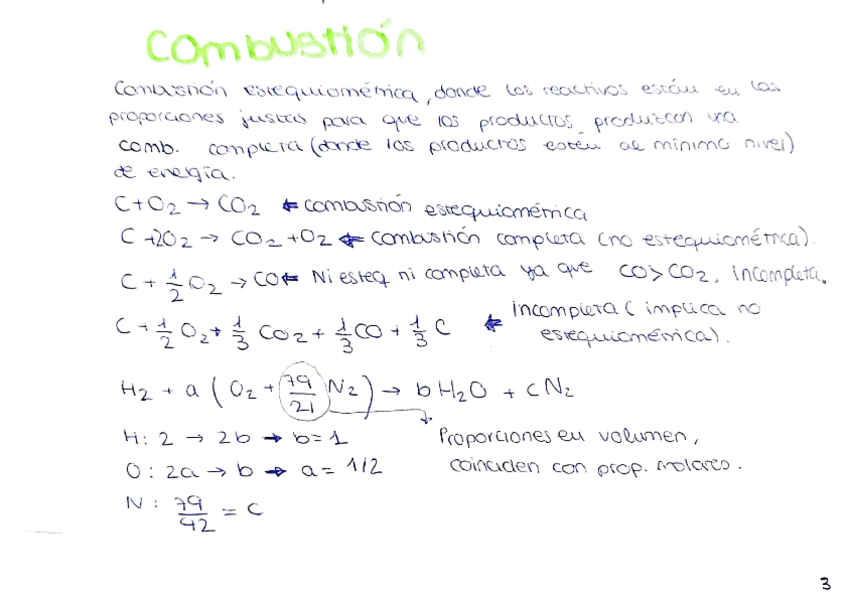 Combustión
Combustión estequiométrica, donde los reactivos están en las
proporciones justas para que los productos produzcan una
comb. completa (donde los productos estén al mínimo nivel)
de energía.
C+O₂ → CO₂ ← combustión estequiométrica
C+2O₂ → CO₂+O₂ ← combustión completa (no estequiométrica).
C + 1/2 O₂ → CO ← Ni esteq ni completa ya que CO>CO₂, incompleta.
C + 1/2 O₂ + 1/3 CO₂ + 1/3 CO + 1/3 C ← Incompleta (implica no
estequiométrica).
H₂ + a (O₂ + 79/21 N₂) → b H₂O + cN₂
H: 2 → 2b → b=1
Proporciones en volumen,
O: 2a → b → a= 1/2
coinciden con prop. molares.
N: 79/42 = c
3